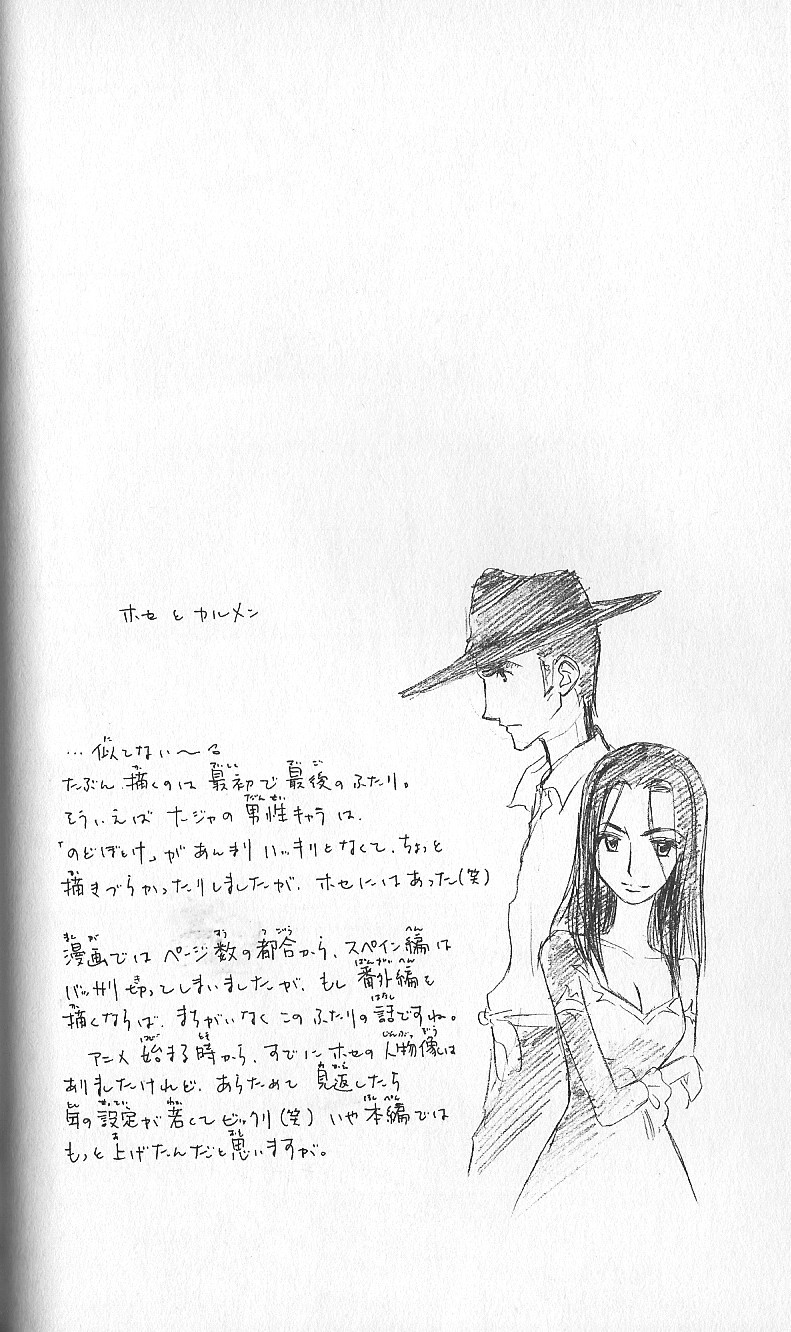 ホセとカルメン
…似てない〜る
たぶん、描くのは最初で最後のふたり。
そういえば ナージャの男性キャラは、
「のどぼとけ」があんまりハッキリとなくて、ちょっと
描きづらかったりしましたが、ホセにはあった(笑)
漫画では ページ数の都合から、スペイン編は
バッサリ切ってしまいましたが、もし番外編を
描くならば、まちがいなくこのふたりの話ですね。
アニメ始まる時から、すでにホセの人物像は
ありましたけれど、あらためて見返したら
年の設定が若くてビックリ(笑) いや本編では
もっと上げたんだと思いますが。